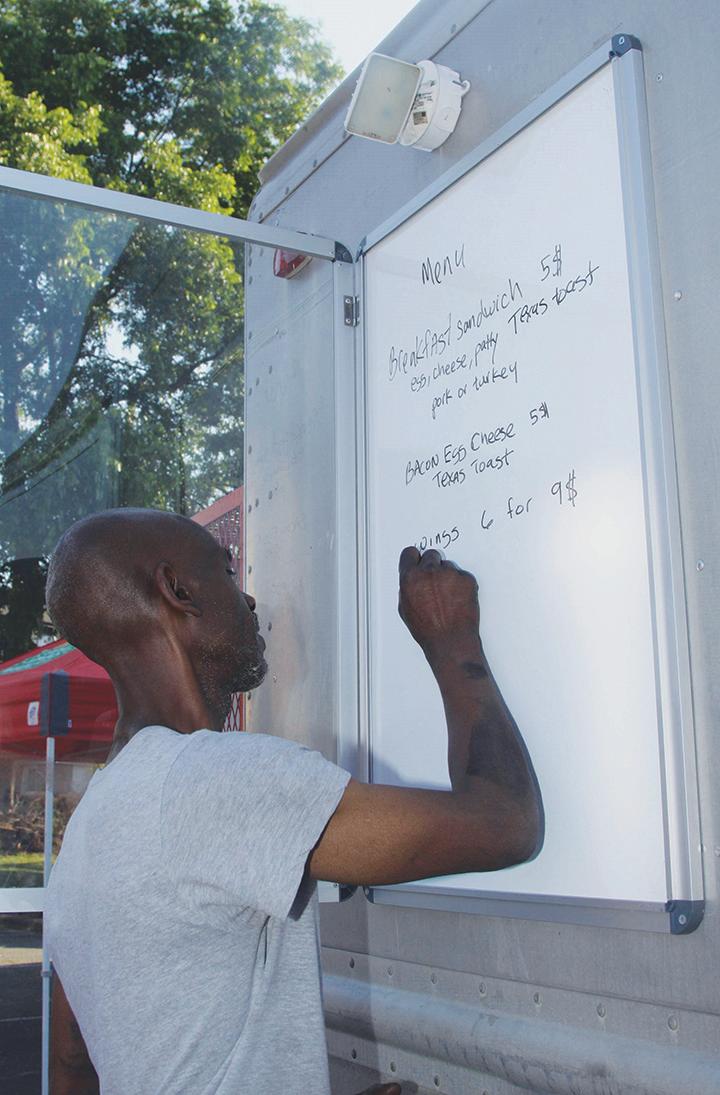 Menu
Breakfast sandwich 5$
egg, cheese, patty Texas toast
pork or turkey
BACON Egg Cheese 5$
Texas Toast
wings 6 for 9$